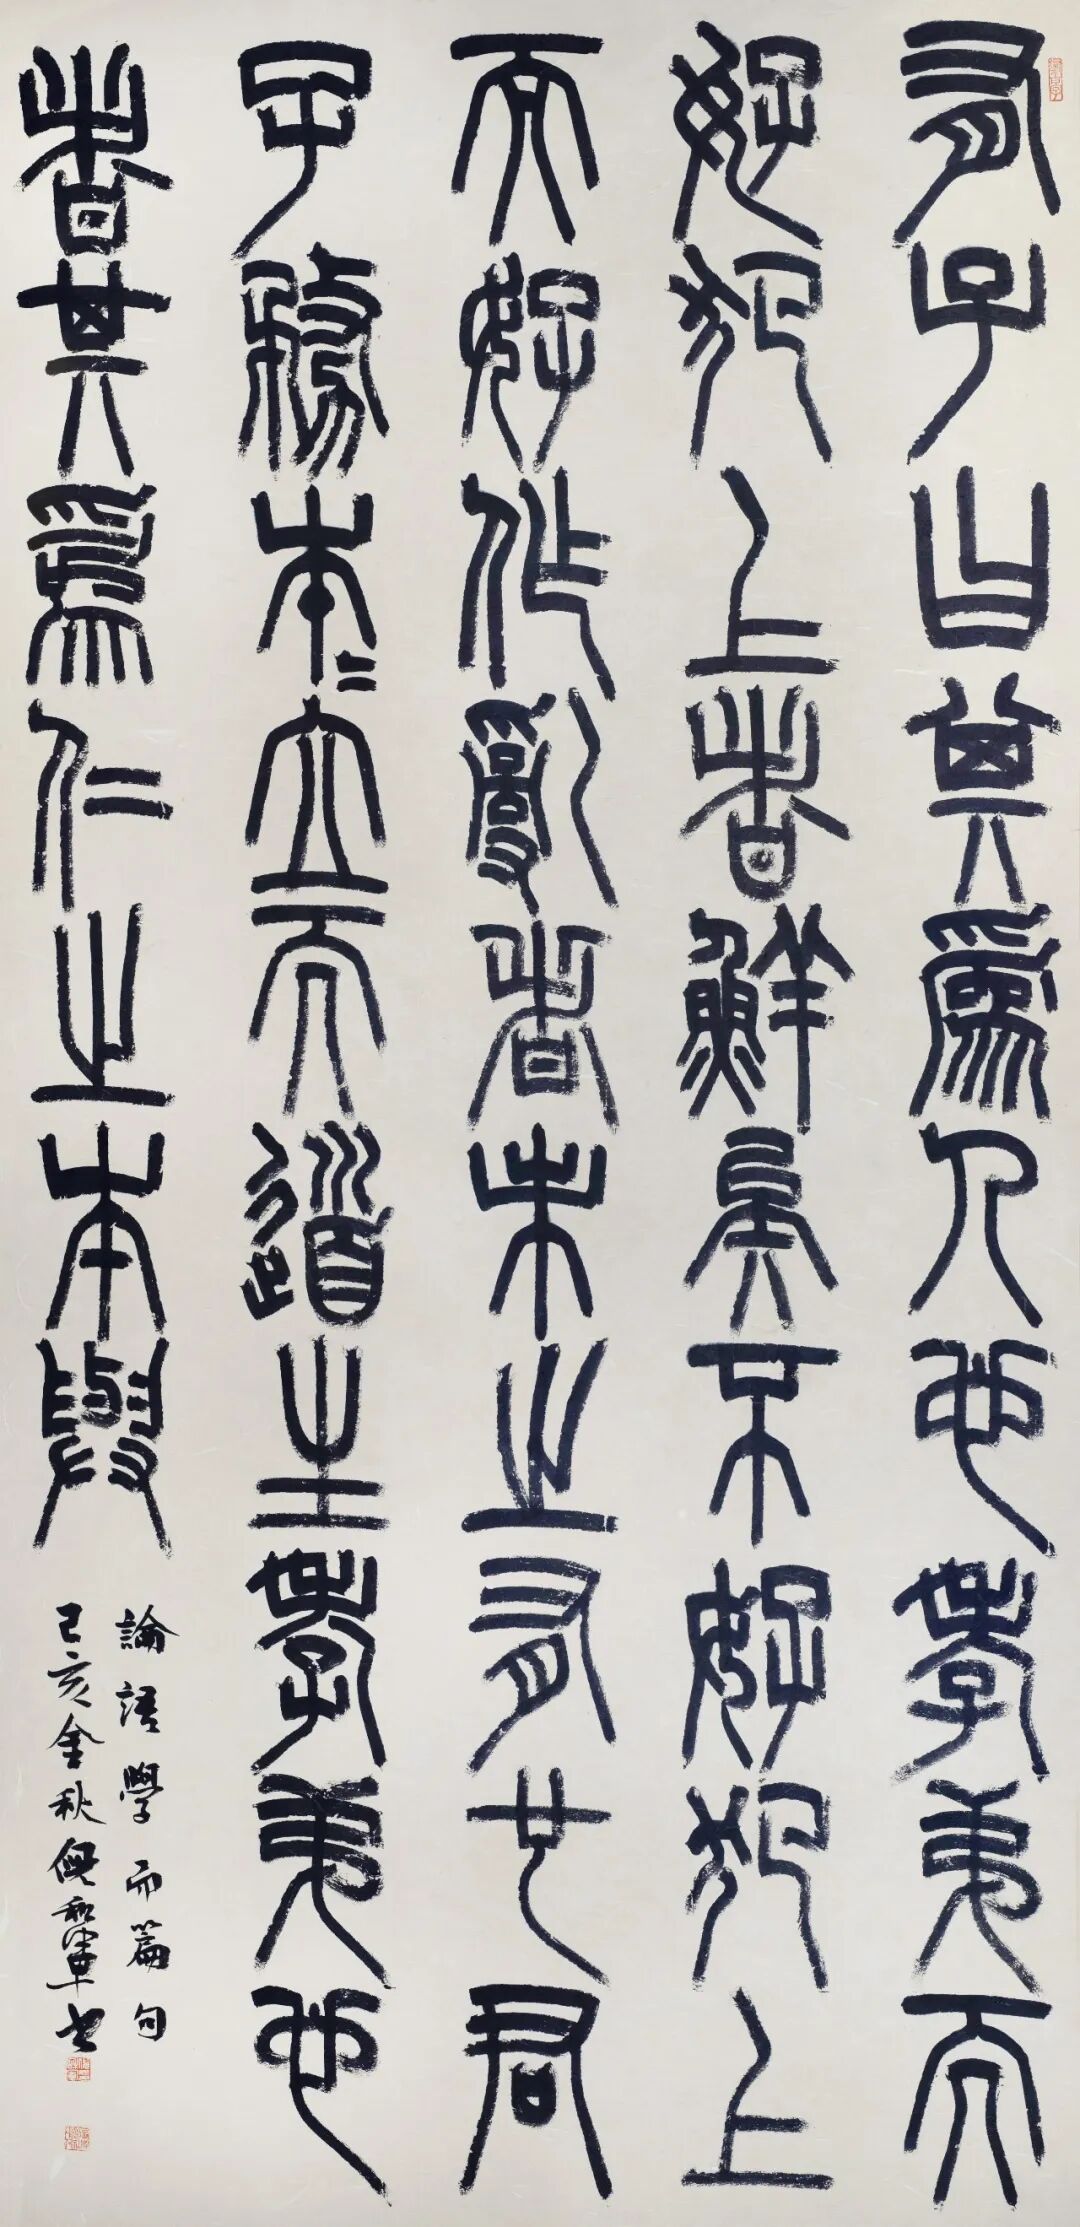 有子曰其爲人也孝弟而
好犯上者鮮矣不好犯上
而好作亂者未之有也君
子務本〻立而道生孝弟也
者其爲仁之本與
論語學而篇句
己亥金秋倪和軍書